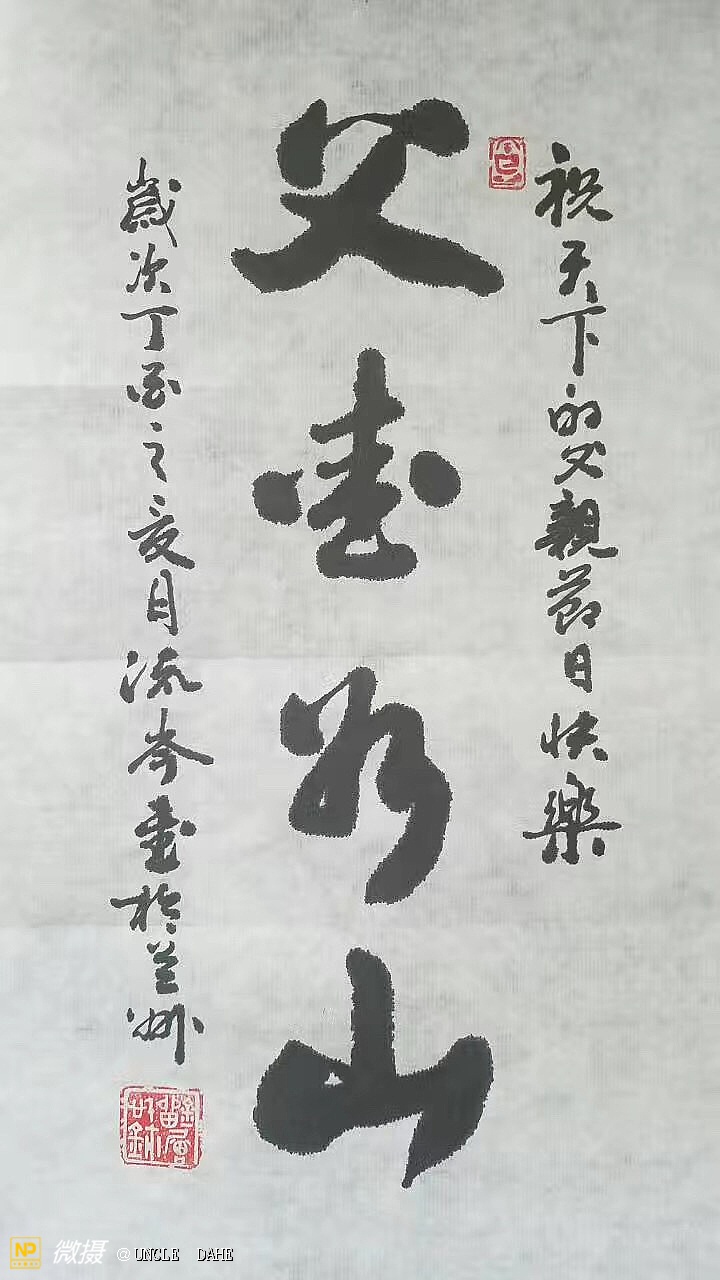 祝天下的父親節日快樂
父愛如山
歲次丁酉之夏月流岑書於兰州
微摄 @UNCLE DAHE
NP